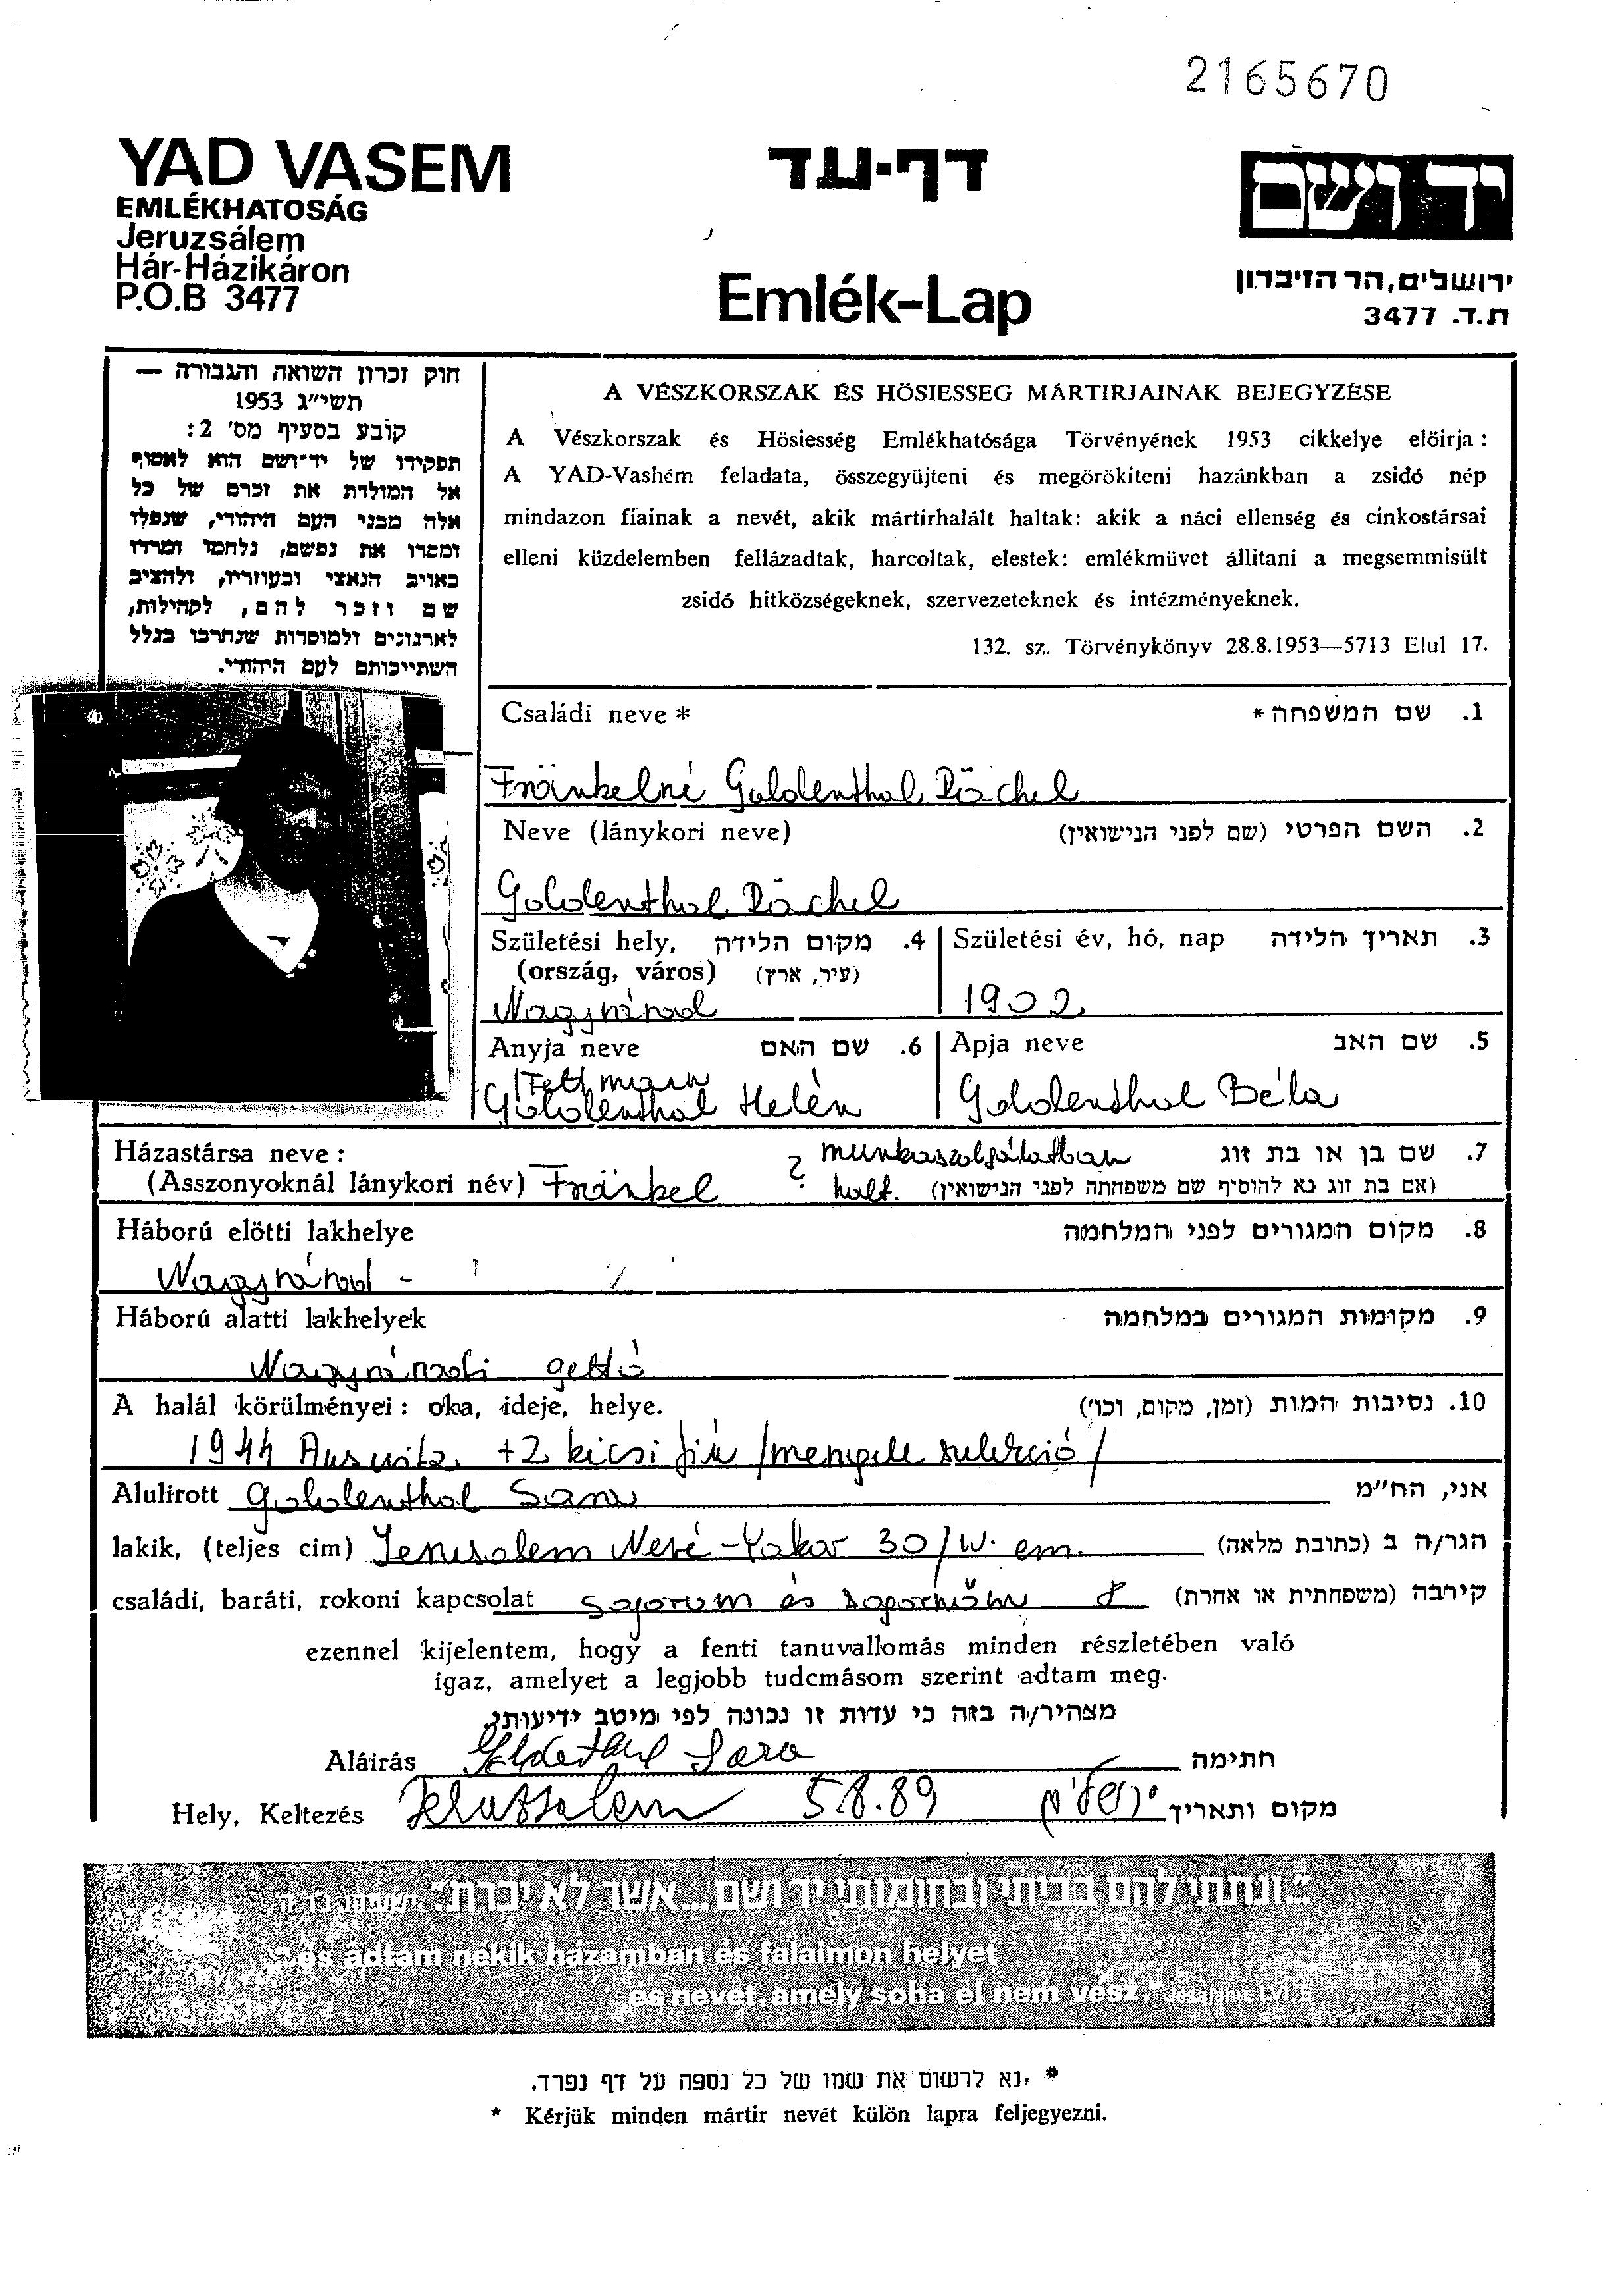 2165670
YAD VASEM
EMLÉKHATOSÁG
Jeruzsálem
Hár-Házikáron
P.O.B 3477
דף-עד
Emlék-Lap
יד ושם
ירושלים, הר הזיכרון
ת.ד. 3477
חוק זכרון השואה והגבורה —
תשי"ג 1953
קובע בסעיף מס' 2:
תפקידו של יד־ושם הוא לאסוף
אל המולדת את זכרם של כל
אלה מבני העם היהודי, שנפלו
ומסרו את נפשם, נלחמו ומרדו
באויב הנאצי ובעוזריו, ולהציב
שם וזכר להם, לקהילות,
לארגונים ולמוסדות שנחרבו בגלל
השתייכותם לעם היהודי.
A VÉSZKORSZAK ÉS HÖSIESSEG MÁRTIRJAINAK BEJEGYZÉSE
A Vészkorszak és Hösiesség Emlékhatósága Törvényének 1953 cikkelye elöirja:
A YAD-Vashém feladata, összegyüjteni és megörökiteni hazánkban a zsidó nép
mindazon fiainak a nevét, akik mártirhalált haltak: akik a náci ellenség és cinkostársai
elleni küzdelemben fellázadtak, harcoltak, elestek: emlékmüvet állitani a megsemmisült
zsidó hitközségeknek, szervezeteknek és intézményeknek.
132. sz. Törvénykönyv 28.8.1953—5713 Elul 17.
Családi neve * 1. שם המשפחה *
Fränkelné Goldenthal Ráchel
Neve (lánykori neve) 2. השם הפרטי (שם לפני הנישואין)
Goldenthal Ráchel
Születési hely, 4. מקום הלידה Születési év, hó, nap 3. תאריך הלידה
(ország, város) (עיר, ארץ)
Nagyvárad 1902
Anyja neve 6. שם האם Apja neve 5. שם האב
Goldenthal Helén Goldenthal Béla
Házastársa neve: ? munkaszolgálatban 7. שם בן או בת זוג
(Asszonyoknál lánykori név) Fränkel halt. (אם בת זוג נא להוסיף שם משפחתה לפני הנישואין)
Háború elötti lakhelye 8. מקום המגורים לפני המלחמה
Nagyvárad -
Háború alatti lakhelyek 9. מקומות המגורים במלחמה
Nagyváradi gettó
A halál körülményei: oka, ideje, helye. 10. נסיבות המות (זמן, מקום, וכו')
1944 Auswitz. +2 kicsi fiu /mengele szelekció/
Alulirott Goldenthal Sara אני, הח"מ
lakik, (teljes cim) Jeruzsalem Nevé-Yakov 30/IV. em. הגר/ה ב (כתובת מלאה)
családi, baráti, rokoni kapcsolat sogorom és sogornöm קירבה (משפחתית או אחרת)
ezennel kijelentem, hogy a fenti tanuvallomás minden részletében való
igaz, amelyet a legjobb tudcmásom szerint adtam meg.
מצהיר/ה בזה כי עדות זו נכונה לפי מיטב ידיעותי.
Aláirás Goldethal Sara חתימה
Hely, Keltezés 5.8.89 ירושלים מקום ותאריך
"ונתתי להם בביתי ובחומותי יד ושם...אשר לא יכרת." ישעיהו נו ה
"és adtam nékik házamban és falaimon helyet
és nevet, amely soha el nem vész."
* נא לרשום את שמו של כל נספה על דף נפרד.
* Kérjük minden mártir nevét külön lapra feljegyezni.